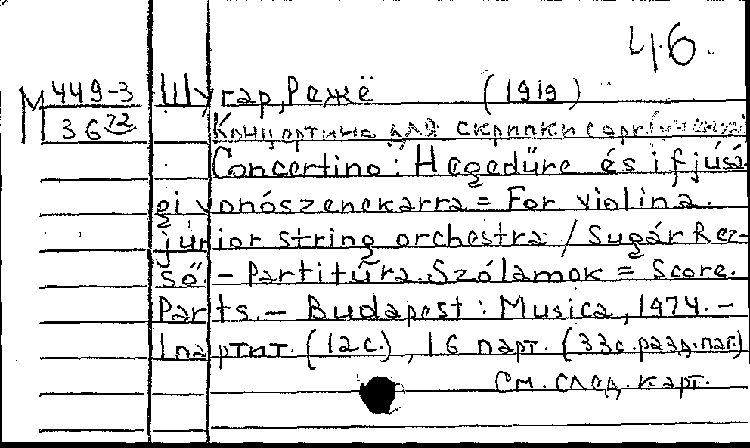 ч.б.
М 449-3 Шугар, Режё (1919)
3672 Концертино для скрипки с
Concertino: Hegedűre és ifjúsá-
gi vonószenekarra = For violin a.
junior string orchestra / Sugár Rez-
ső. - Partitúra. Szólamok = Score.
Parts. - Budapest: Musica, 1974. -
1 партит. (12 с.), 16 парт. (33 с. разд. паг.)
См. след. карт.